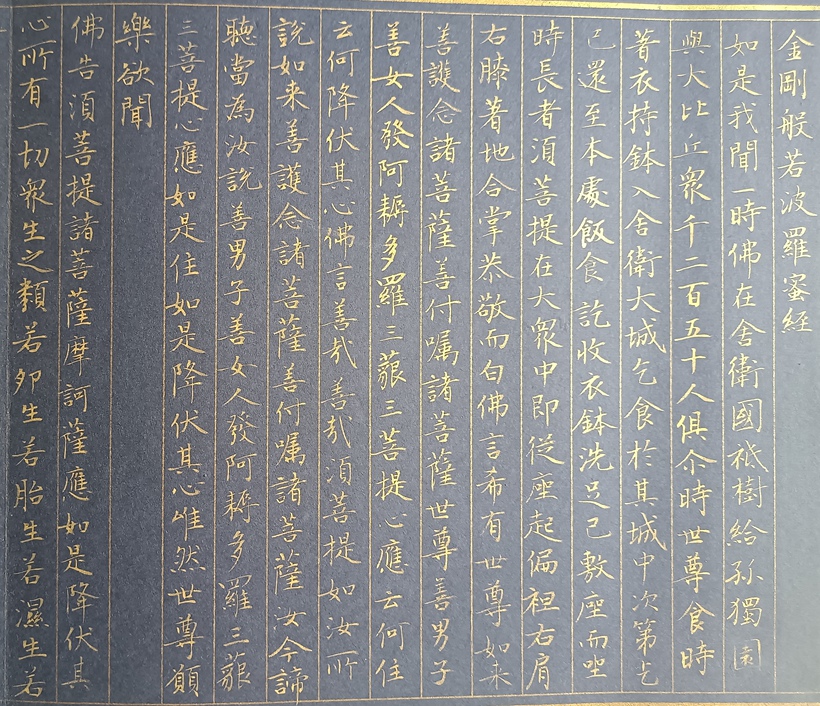 金剛般若波羅蜜経
如是我聞一時佛在舍衛國祇樹給孤獨園
與大比丘衆千二百五十人俱尒時世尊食時
著衣持鉢入舍衛大城乞食於其城中次第乞
已還至本處飯食訖收衣鉢洗足已敷座而坐
時長者須菩提在大衆中即従座起偏袒右肩
右膝著地合掌恭敬而白佛言希有世尊如来
善護念諸菩薩善付嘱諸菩薩世尊善男子
善女人發阿耨多羅三藐三菩提心應云何住
云何降伏其心佛言善哉善哉須菩提如汝所
説如来善護念諸菩薩善付嘱諸菩薩汝今諦
聴當為汝説善男子善女人發阿耨多羅三藐
三菩提心應如是住如是降伏其心唯然世尊願
樂欲聞
佛告須菩提諸菩薩摩訶薩應如是降伏其
心所有一切衆生之類若卵生若胎生若濕生若